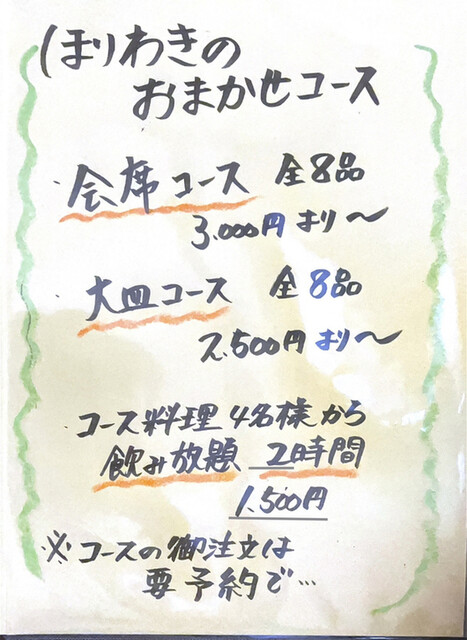 ほりわきの
おまかせコース
・会席コース 全8品
3.000円より〜
・大皿コース 全8品
2.500円より〜
コース料理4名様から
飲み放題 2時間
1.500円
※コースの御注文は
要予約で…